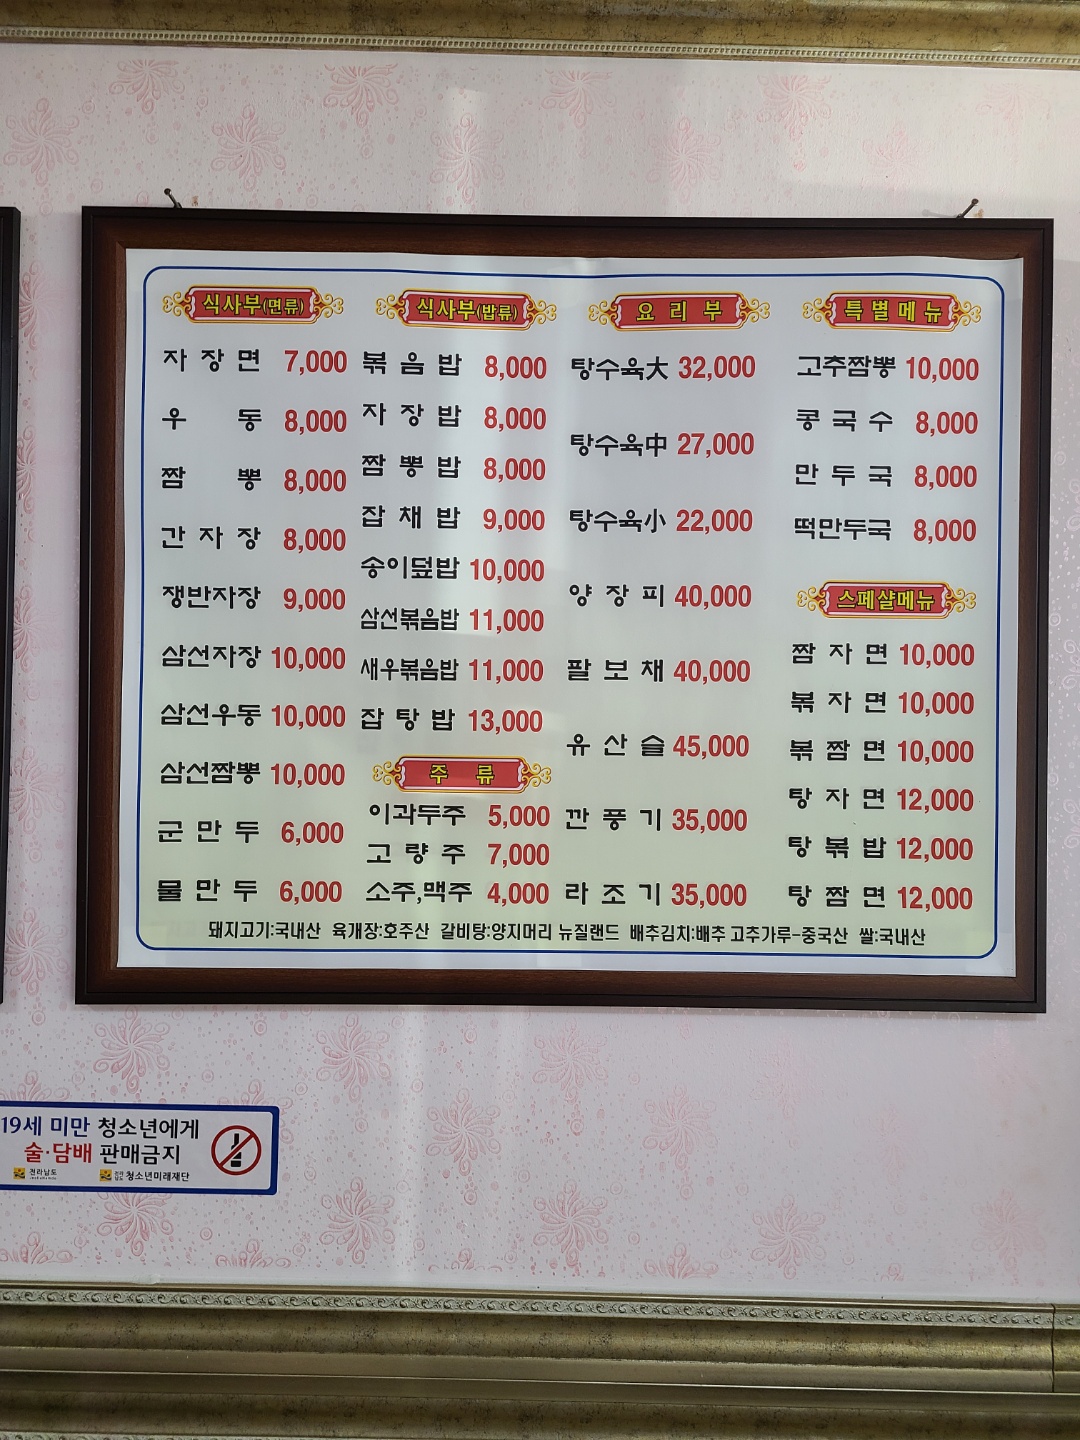 식사부(면류)
자장면 7,000
우동 8,000
짬뽕 8,000
간자장 8,000
쟁반자장 9,000
삼선자장 10,000
삼선우동 10,000
삼선짬뽕 10,000
군만두 6,000
물만두 6,000
식사부(밥류)
볶음밥 8,000
자장밥 8,000
짬뽕밥 8,000
잡채밥 9,000
송이덮밥 10,000
삼선볶음밥 11,000
새우볶음밥 11,000
잡탕밥 13,000
주류
이과두주 5,000
고량주 7,000
소주,맥주 4,000
요리부
탕수육大 32,000
탕수육中 27,000
탕수육小 22,000
양장피 40,000
팔보채 40,000
유산슬 45,000
깐풍기 35,000
라조기 35,000
특별메뉴
고추짬뽕 10,000
콩국수 8,000
만두국 8,000
떡만두국 8,000
스페샬메뉴
짬자면 10,000
볶자면 10,000
볶짬면 10,000
탕자면 12,000
탕볶밥 12,000
탕짬면 12,000
돼지고기:국내산 육개장:호주산 갈비탕:양지머리 뉴질랜드 배추김치:배추 고추가루-중국산 쌀:국내산
19세 미만 청소년에게
술·담배 판매금지
전라남도 청소년미래재단